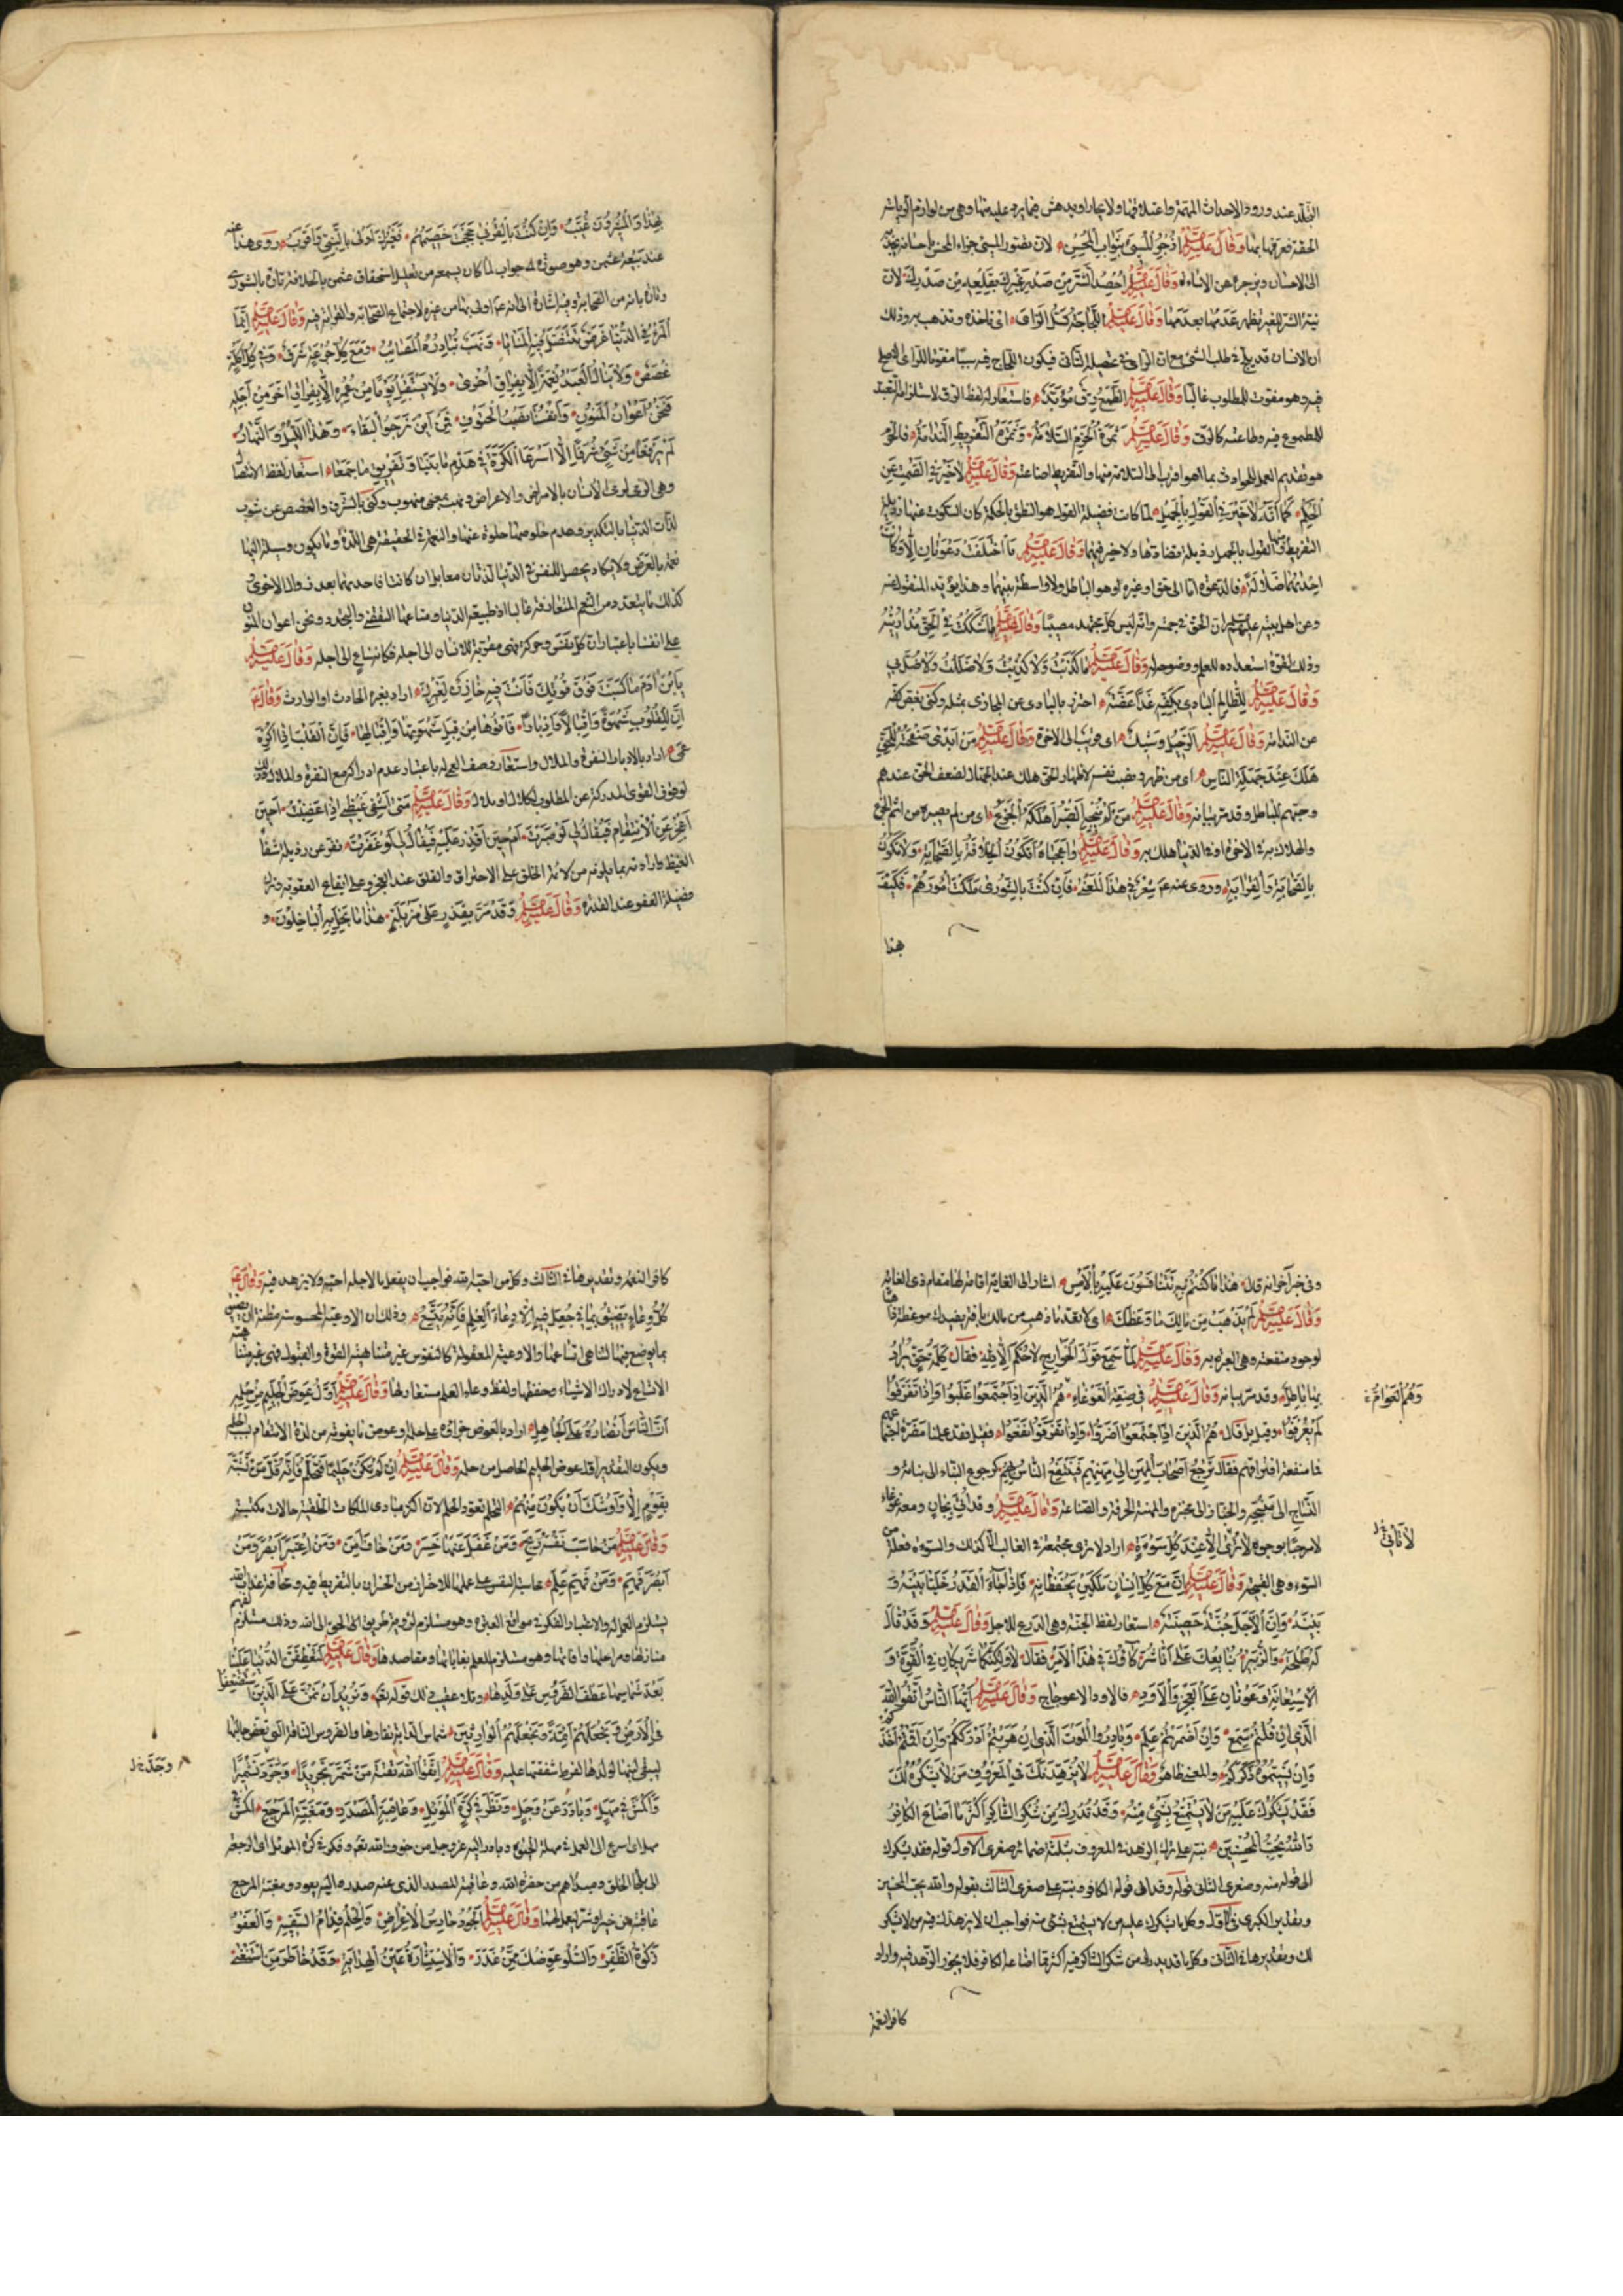 التجلّد عند ورود الاحداث المهمّة واعتلاقها ولا يحار او يدهش فيما يرد عليه منها وهى من لوازم
الحقة ضرورة وَقَالَ عَلَيْهِ السَّلام اُزْجُرِ الْمُسِئَ بِثَوَابِ الْمُحْسِنِ لان تصور المسئ جزاء المحسن باحسانه يجذبه
الى الاحسان ويزجره عن الاساءة وَقَالَ عَلَيْهِ السَّلام اُحْصُدِ الشَّرَّ مِنْ صَدْرِ غَيْرِكَ بِقَلْعِهِ مِنْ صَدْرِكَ لان
نية الشر للغير يظهر وَقَالَ عَلَيْهِ السَّلام اللَّجَاجَةُ تَسُلُّ الرَّأىَ اى تاخذه وتذهب به وذلك
ان الانسان قد يلج فى طلب الشئ مع ان الراى فى تحصيله التأنى فيكون اللجاج فيه سببا مفوتا للراى الاصلح
فيه وهو مفوت للمطلوب غالبا وَقَالَ عَلَيْهِ السَّلام الطَّمَعُ رِقٌّ مُؤَبَّدٌ فاستعار له لفظ الرق لاستلزامه التعبد
للمطموع فيه وطاعته كالرق وَقَالَ عَلَيْهِ السَّلام ثَمَرَةُ الْحَزْمِ السَّلامَةُ وَثَمَرَةُ التَّفْرِيطِ النَّدَامَةُ فالحزم
هو تقديم العمل للحوادث بما هو اقرب الى السلامة منها والتفريط اضاعته وَقَالَ عَلَيْهِ السَّلام لاَ خَيْرَ فِى الصَّمْتِ عَنِ
الْحُكْمِ كَمَا اَنَّهُ لاَ خَيْرَ فِى الْقَوْلِ بِالْجَهْلِ لما كانت فضيلة القول هو النطق بالحكمة كان السكوت عنها رذيلة
التفريط والقول بالجهل رذيلة مضادتها ولا خير فيهما وَقَالَ عَلَيْهِ السَّلام مَا اخْتَلَفَتْ دَعْوَتَانِ اِلاَّ وَكَانَتْ
اِحْدٰيهُمَا ضَلاَلَةً فالدعوة اما الى حق او غيره او هو الباطل ولا واسطة بينهما وهذا يؤيد المنقول عنه
وعن اهل بيته عليهم السلم ان الحق فى جهة وانه ليس كل مجتهد مصيبا وَقَالَ عَلَيْهِ السَّلام مَا شَكَكْتُ فِى الْحَقِّ مُذْ اُرِيتُهُ
وذلك لقوة استعداده للعلم ووضوحه وَقَالَ عَلَيْهِ السَّلام مَا كَذَبْتُ وَلاَ كُذِّبْتُ وَلاَ ضَلَلْتُ وَلاَ ضُلَّ بِى
وَقَالَ عَلَيْهِ السَّلام لِلظَّالِمِ الْبَادِى بِكَفِّهِ غَداً عَضَّةٌ احترز بالبادى عن المجازى بمثله وكنى بعض كفه
عن الندامة وَقَالَ عَلَيْهِ السَّلام الرَّحِيلُ وَشِيكٌ اى قريب الى الاخرة وَقَالَ عَلَيْهِ السَّلام مَنْ اَبْدٰى صَفْحَتَهُ لِلْحَقِّ
هَلَكَ عِنْدَ جَهَلَةِ النَّاسِ اى من ظهر ونصب نفسه لاظهار الحق هلك عند الجهال لضعف الحق عندهم
وحبهم للباطل وقد مر بيانه وَقَالَ عَلَيْهِ السَّلام مَنْ لَمْ يُنْجِهِ الصَّبْرُ اَهْلَكَهُ الْجَزَعُ اى من لم يصبر من اثم الجزع
والهلاك به فى الاخرة او فى الدنيا هلك به وَقَالَ عَلَيْهِ السَّلام وَاعَجَبَاهُ اَتَكُونُ الْخِلاَفَةُ بِالصَّحَابَةِ وَلاَ تَكُونُ
بِالصَّحَابَةِ وَالْقِرَابَةِ وروى عنه ع شِعْرٌ فِى هٰذَا الْمَعْنٰى فَاِنْ كُنْتَ بِالشُّورٰى مَلَكْتَ اُمُورَهُمْ فَكَيْفَ
بهذا
بِهٰذَا وَالْمُشِيرُونَ غُيَّبُ وَاِنْ كُنْتَ بِالْقُرْبٰى حَجَجْتَ خَصِيمَهُمْ فَغَيْرُكَ اَوْلٰى بِالنَّبِىِّ وَاَقْرَبُ روى هذا عنه
عند بيعة عثمن وهو صورة جواب لما كان يسمعه من تعليل استحقاق عثمن بالخلافة تارة بالشورى
وتارة بانه من الصحابة وفيه اشارة الى انه ع اولى بها من غيره لاجتماع الصحابة والقرابة فيه وَقَالَ عَلَيْهِ السَّلام اِنَّمَا
الْمَرْءُ فِى الدُّنْيَا غَرَضٌ تَنْتَضِلُ فِيهِ الْمَنَايَا وَنَهْبٌ تُبَادِرُهُ الْمَصَائِبُ وَمَعَ كُلِّ جُرْعَةٍ شَرَقٌ وَفِى كُلِّ اَكْلَةٍ
غَصَصٌ وَلاَ يَنَالُ الْعَبْدُ نِعْمَةً اِلاَّ بِفِرَاقِ اُخْرٰى وَلاَ يَسْتَقْبِلُ يَوْماً مِنْ عُمُرِهِ اِلاَّ بِفِرَاقِ اٰخَرَ مِنْ اَجَلِهِ
فَنَحْنُ اَعْوَانُ الْمَنُونِ وَاَنْفُسُنَا نَصْبُ الْحُتُوفِ فَمِنْ اَيْنَ نَرْجُوا الْبَقَاءَ وَهٰذَا اللَّيْلُ وَالنَّهَارُ
لَمْ يَرْفَعَا مِنْ شَىْءٍ شَرَفاً اِلاَّ اَسْرَعَا الْكَرَّةَ فِى هَدْمِ مَا بَنَيَا وَتَفْرِيقِ مَا جَمَعَا استعار لفظ الانتضال
وهى الرمى لرمى الانسان بالامراض والاعراض ونهب بمعنى منهوب وكنى بالشرق والغصص عن شوب
لذات الدنيا بالتكدير وعدم خلوصها
نعمة بالعرض ولا يكاد يحصل للنفس فى الدنيا لذتان
كذلك
على انفسنا باعتبار ان كل نفس وحركة فهى مقربة للانسان الى اجله فكانه ساع الى اجله وَقَالَ عَلَيْهِ السَّلام
يَا بْنَ اٰدَمَ مَا كَسَبْتَ فَوْقَ قُوتِكَ فَاَنْتَ فِيهِ خَازِنٌ لِغَيْرِكَ اراد بغيره الحادث او الوارث وَقَالَ ع
اِنَّ لِلْقُلُوبِ شَهْوَةً وَاِقْبَالاً وَاِدْبَاراً فَاْتُوهَا مِنْ قِبَلِ شَهْوَتِهَا وَاِقْبَالِهَا فَاِنَّ الْقَلْبَ اِذَا اُكْرِهَ
عَمِىَ اراد بالادبار النفرة والملال واستعار وصف العمى له باعتبار عدم ادراكه مع النفرة والملال
لوقوف القوى المدركة عن المطلوب وَقَالَ عَلَيْهِ السَّلام مَتٰى اَشْفِى غَيْظِى اِذَا غَضِبْتُ اَحِينَ
اَعْجِزُ عَنِ الْاِنْتِقَامِ فَيُقَالُ لِى لَوْ صَبَرْتَ اَمْ حِينَ اَقْدِرُ عَلَيْهِ فَيُقَالُ لِى لَوْ غَفَرْتَ نفر عن رذيلة شفاء
الغيظ وارادته بما يلزمه من لائمة الخلق على الاحتراق والقلق عند العجز وعلى ايقاع العقوبة وترك
فضيلة العفو عند القدرة وَقَالَ عَلَيْهِ السَّلام وَقَدْ مَرَّ بِقَذَرٍ عَلٰى مَزْبَلَةٍ هٰذَا مَا بَخِلَ بِهِ الْبَاخِلُونَ و
وفى خبر آخر انه قال هٰذَا مَا كُنْتُمْ تَتَنَافَسُونَ عَلَيْهِ بِالْاَمْسِ اشار الى الغاية اقامة لها مقام ذى الغاية
وَقَالَ عَلَيْهِ السَّلام لَمْ يَذْهَبْ مِنْ مَالِكَ مَا وَعَظَكَ اى لا تعد ما ذهب من مالك
لوجود منفعته وهى العبرة به وَقَالَ عَلَيْهِ السَّلام لَمَّا سَمِعَ قَوْلَ الْخَوَارِجِ لاَ حُكْمَ اِلاَّ لِلّٰهِ فقال كَلِمَةُ حَقٍّ يُرَادُ
بِهَا بَاطِلٌ وقد مر بيانه وَقَالَ عَلَيْهِ السَّلام فِى صِفَةِ الْغَوْغَاءِ هُمُ الَّذِينَ اِذَا اجْتَمَعُوا غَلَبُوا وَاِذَا تَفَرَّقُوا
وَهُمُ الْعَوَامُّ
لَمْ يُعْرَفُوا وقيل بل قال هُمُ الَّذِينَ اِذَا اجْتَمَعُوا ضَرُّوا وَاِذَا تَفَرَّقُوا نَفَعُوا فقيل قد علمنا مضرة اجتماعهم
فما منفعة افتراقهم فقال يَرْجِعُ اَصْحَابُ الْمِهَنِ اِلٰى مِهَنِهِمْ فَيَنْتَفِعُ النَّاسُ بِهِمْ كرجوع البناء الى بنائه و
النساج الى منسجه والخباز الى مخبزه والمهنة الحرفة والصناعة وَقَالَ عَلَيْهِ السَّلام وقد اُتِىَ بِجَانٍ ومعه غوغاء
لا مرحبا بوجوه لاَ تُرٰى اِلاَّ عِنْدَ كُلِّ سَوْءَةٍ اراد لا ترى مجتمعة فى الغالب الا كذلك والسوءة فعلة من
السوء وهى القبيحة وَقَالَ عَلَيْهِ السَّلام اِنَّ مَعَ كُلِّ اِنْسَانٍ مَلَكَيْنِ يَحْفَظَانِهِ فَاِذَا جَاءَ الْقَدَرُ خَلَّيَا بَيْنَهُ وَ
بَيْنَهُ وَاِنَّ الْاَجَلَ جُنَّةٌ حَصِينَةٌ استعار لفظ الجنة وهى الدرع للاجل وَقَالَ عَلَيْهِ السَّلام وَقَدْ قَالَ
لَهُ طَلْحَةُ وَالزُّبَيْرُ نُبَايِعُكَ عَلٰى اَنَّا شُرَكَاؤُكَ فِى هٰذَا الْاَمْرِ فقال لاَ وَلٰكِنَّكُمَا شَرِيكَانِ فِى الْقُوَّةِ وَ
الْاِسْتِعَانَةِ وَعَوْنَانِ عَلَى الْعَجْزِ وَالْاَوَدِ فالاود الاعوجاج وَقَالَ عَلَيْهِ السَّلام اَيُّهَا النَّاسُ اتَّقُوا اللّٰهَ
الَّذِى اِنْ قُلْتُمْ سَمِعَ وَاِنْ اَضْمَرْتُمْ عَلِمَ وَبَادِرُوا الْمَوْتَ الَّذِى اِنْ هَرَبْتُمْ اَدْرَكَكُمْ وَاِنْ اَقَمْتُمْ اَخَذَكُمْ
وَاِنْ نَسِيتُمُوهُ ذَكَرَكُمْ والمعنى ظاهر وَقَالَ عَلَيْهِ السَّلام لاَ يُزَهِّدَنَّكَ فِى الْمَعْرُوفِ مَنْ لاَ يَشْكُرُهُ لَكَ
فَقَدْ يَشْكُرُكَ عَلَيْهِ مَنْ لاَ يَسْتَمْتِعُ بِشَىْءٍ مِنْهُ وَقَدْ تُدْرِكُ مِنْ شُكْرِ الشَّاكِرِ اَكْثَرَ مِمَّا اَضَاعَ الْكَافِرُ
وَاللّٰهُ يُحِبُّ الْمُحْسِنِينَ نبه على ترك الزهد فى المعروف بثلثة ضمائر صغرى الاول قوله فقد يشكرك
الى قوله منه وصغرى الثانى قوله وقد الى قوله الكافر ونبه على صغرى الثالث بقوله والله يحب المحسنين
وتقدير الكبرى فى الاول وكل ما يشكرك عليه من لا يستمتع بشئ منه فواجب ان لا يزهدك فيه من لا يشكره
لك وتقديرها فى الثانى وكل ما قد يدرك من شكر الشاكر فيه اكثر مما اضاعه الكافر فلا يجوز الزهد فيه واراد
كافر النعمة
كافر النعمة وتقديرها فى الثالث وكل من احبه الله فواجب ان يفعل ما لاجله احبه ولا يزهد فيه وَقَالَ ع
كُلُّ وِعَاءٍ يَضِيقُ بِمَا جُعِلَ فِيهِ اِلاَّ وِعَاءَ الْعِلْمِ فَاِنَّهُ يَتَّسِعُ وذلك ان الاوعية المحسوسة
بما يوضع فيها لتناهى اتساعها والاوعية المعقولة كالنفوس غير متناهية القوة والقبول فهى غير متناهية
الاتساع لادراك الاشياء وحفظها ولفظ وعاء العلم مستعار لها وَقَالَ عَلَيْهِ السَّلام اَوَّلُ عِوَضِ الْحَلِيمِ مِنْ حِلْمِهِ
اَنَّ النَّاسَ اَنْصَارُهُ عَلَى الْجَاهِلِ اراد بالعوض جزاؤه على حلمه وعوض ما يفوته من لذة الانتقام
ويكون التقدير اول عوض الحليم الحاصل من حلمه وَقَالَ عَلَيْهِ السَّلام اِنْ لَمْ تَكُنْ حَلِيماً فَتَحَلَّمْ فَاِنَّهُ قَلَّ مَنْ تَشَبَّهَ
بِقَوْمٍ اِلاَّ وَاَوْشَكَ اَنْ يَكُونَ مِنْهُمْ التحلم تعود الحلم لان اكثر مبادى الملكات الخلقية حالات مكتسبة
وَقَالَ عَلَيْهِ السَّلام مَنْ حَاسَبَ نَفْسَهُ رَبِحَ وَمَنْ غَفَلَ عَنْهَا خَسِرَ وَمَنْ خَافَ اَمِنَ وَمَنِ اعْتَبَرَ اَبْصَرَ وَمَنْ
اَبْصَرَ فَهِمَ وَمَنْ فَهِمَ عَلِمَ محاسبة النفس على عملها للاحتراز من الخسران بالتفريط فيه ومخافة عذاب الله
يستلزم العمل له والاعتبار الفكر فى مواقع العبرة وهو مستلزم لرؤية طريق الحق الى الله وذلك مستلزم لفهم
منازلها ومراحلها وآفاتها وهو مستلزم للعلم بغاياتها ومقاصدها وَقَالَ عَلَيْهِ السَّلام لَتَعْطِفَنَّ الدُّنْيَا عَلَيْنَا
بَعْدَ شِمَاسِهَا عَطْفَ الضَّرُوسِ عَلٰى وَلَدِهَا وتلا عقيب ذلك قوله تعالى وَنُرِيدُ اَنْ نَمُنَّ عَلَى الَّذِينَ اسْتُضْعِفُوا
فِى الْاَرْضِ وَنَجْعَلَهُمْ اَئِمَّةً وَنَجْعَلَهُمُ الْوَارِثِينَ شماس الدابة نفارها والضروس الناقة التى تعض حالبها
ليبقى لبنها لولدها لفرط شفقتها عليه وَقَالَ عَلَيْهِ السَّلام اِتَّقُوا اللّٰهَ تَقِيَّةَ مَنْ شَمَّرَ تَجْرِيداً وَجَرَّدَ تَشْمِيراً
وجَدَّ
وَاَكْمَشَ فِى مَهَلٍ وَبَادَرَ عَنْ وَجَلٍ وَنَظَرَ فِى كَرَّةِ الْمَوْئِلِ وَعَاقِبَةِ الْمَصْدَرِ وَمَغَبَّةِ الْمَرْجِعِ اكمش فى
مهل اى اسرع الى العمل فى مهلة الحيوة وبادر اليه عن وجل من خوف الله تعالى وفكر فى كرة الموئل اى الرجعة
الى ملجأ الخلق ومبدأهم من حضرة الله وعاقبة المصدر الذى عنه صدر واليه يعود ومغبة المرجع
عاقبته من خير او شر وَقَالَ عَلَيْهِ السَّلام الْجُودُ حَارِسُ الْاَعْرَاضِ وَالْحِلْمُ فِدَامُ السَّفِيهِ وَالْعَفْوُ
زَكٰوةُ الظَّفَرِ وَالسُّلُوُّ عِوَضُكَ مِمَّنْ غَدَرَ وَالْاِسْتِشَارَةُ عَيْنُ الْهِدَايَةِ وَقَدْ خَاطَرَ مَنِ اسْتَغْنٰى